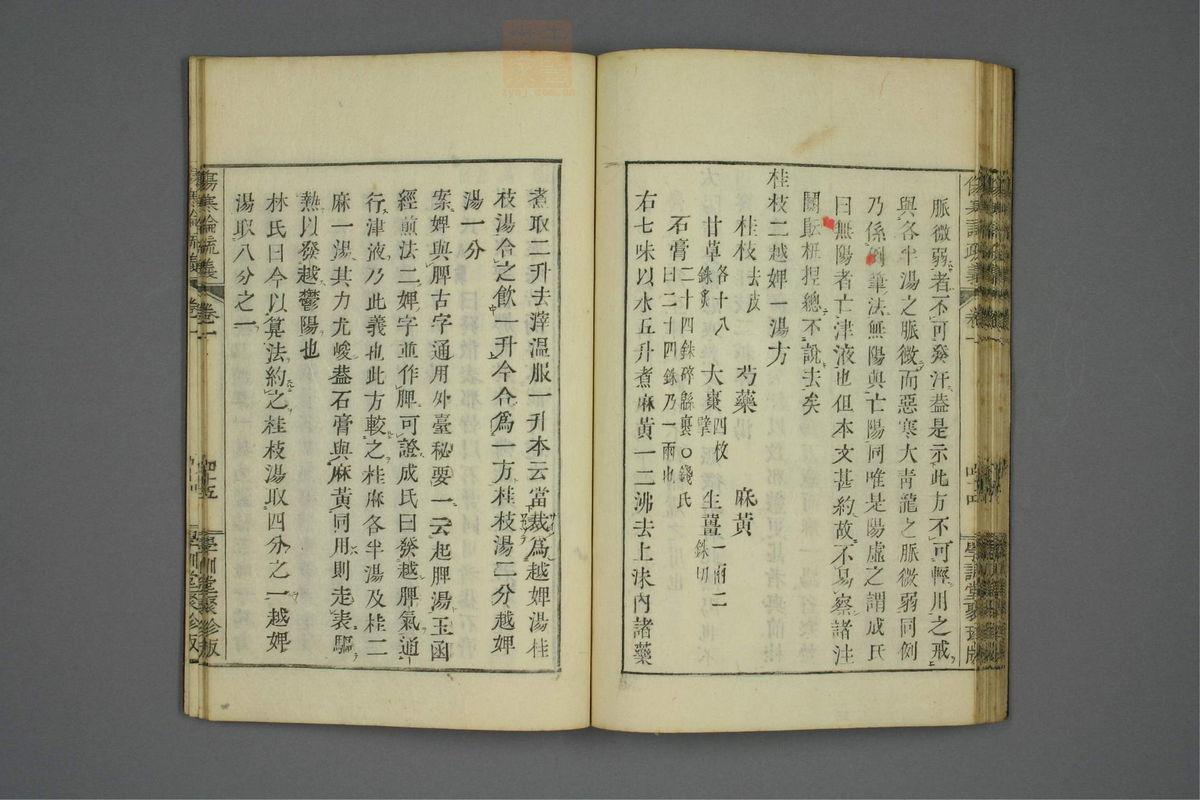 脈微弱者不可發汗蓋是示此方不可輕用之戒
與各半湯之脈微而惡寒大青龍之脈微弱同例
乃係倒筆法無陽與亡陽同唯是陽虛之謂成氏
曰無陽者亡津液也但本文甚約故不易察諸註
闕疑捏總不說去矣
桂枝二越婢一湯方
桂枝去皮 芍藥 麻黃
甘草各十八銖炙 大棗四枚擘 生薑一兩二銖切
石膏二十四銖碎緜裹○錢氏曰二十四銖乃一兩也
右七味以水五升煮麻黃一二沸去上沫內諸藥
煮取二升去滓溫服一升本云當裁為越婢湯桂
枝湯合之飲一升今合為一方桂枝湯二分越婢
湯一分
案婢與脾古字通用外臺秘要一云起脾湯玉函
經煎法二婢字並作脾可證成氏曰發越脾氣通
行津液乃此義也此方較之桂麻各半湯及桂二
麻一湯其力尤峻蓋石膏與麻黃同用則走表驅
熱以發越鬱陽也
林氏曰今以算法約之桂枝湯取四分之一越婢
湯取八分之一
傷寒論疏義 卷一 四十五 學訓堂聚珍版